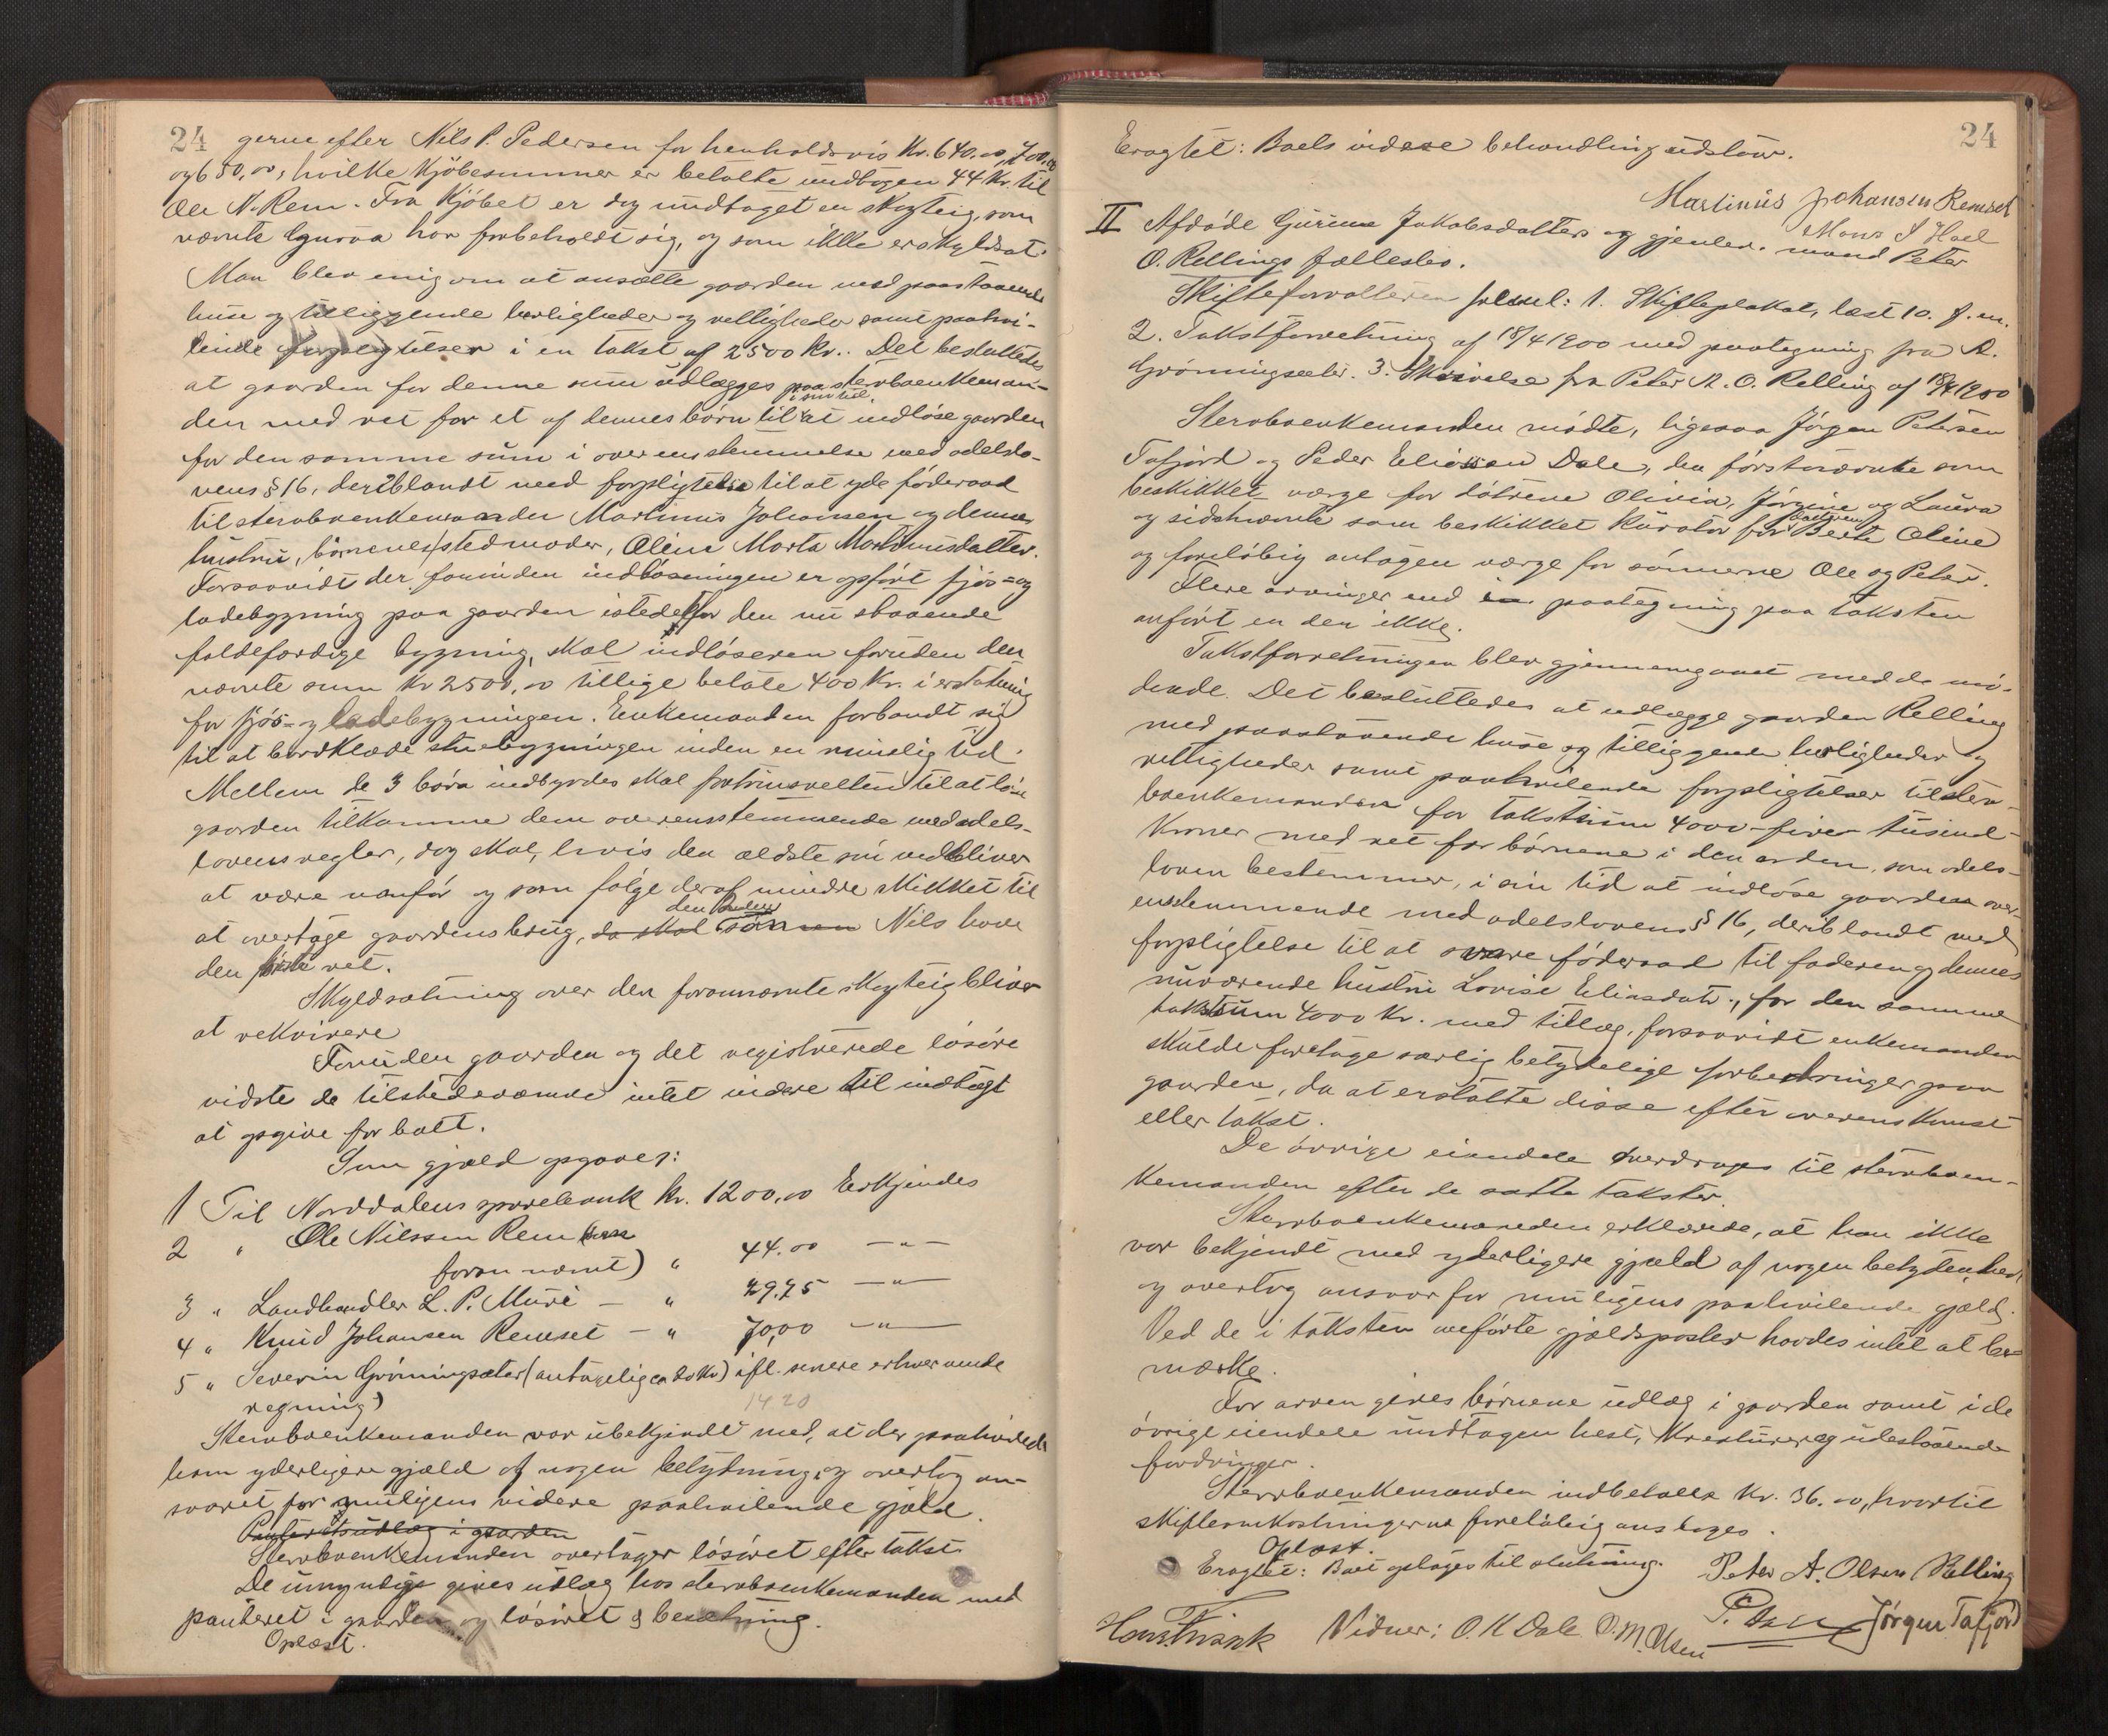 24
gerne efter Nils P. Pedersen for henholdsvis Kr. 640.00, 700.00
og 650,00, hvilke Kjöbesummer er betalte undtagen 44 Kr. til
Ole N. Rem. Fra Kjöbet er dog undtaget en skogteig, som
nævnte Guroa har forbeholdt sig, og som ikke er skyldsat.
Man blev enig om at ansætte gaarden med paastaaende
huse og tilliggende herligheder og rettigheder samt paahvi-
lende forpligtelser i en takst af 2500 Kr.. Det besluttedes
at gaarden for denne sum udlægges paa sterboenkeman-
den med ret for et af dennes börn til i sin tid at indlöse gaarden
for den samme sum i overensstemmelse med odelslo-
vens § 16, deriblandt med forpligtelse til at yde föderaad
til sterboenkemanden Martinus Johansen og dennes
hustru, börnenes stedmoder, Oline Marta Martinusdatter.
Forsaavidt der forinden indlösningen er opfört fjös- og
ladebygning paa gaarden istedetfor den nu staaende
faldefærdige bygning, skal indlöseren foruden den
nævnte sum Kr 2500,00 tillige betale 400 Kr. i erstatning
for fjös- og ladebygningen. Enkemanden forbandt sig
til at bordklæde stuebygningen inden en rimelig tid.
Mellem de 3 börn indbyrdes skal fortrinsretten til at löse
gaarden tilkomme dem overensstemmende med odels-
lovens regler, dog skal, hvis den ældste sön vedbliver
at være vanför og som fölge deraf mindre skikket til
at overtage gaardens brug, da skal sönnen den anden Nils have
den förste ret.
Skyldsætning over den forannævnte skogteig bliver
at rekvirere
Foruden gaarden og det registrerede lösöre
vidste de tilstedeværende intet videre til indtægt
at opgive for boet.
Som gjæld opgaves:
1 Til Norddalens sparebank kr. 1200,00 Erkjendes
2 " Ole Nilssen Rem (som
foran nævnt) " 44.00 —"—
3 " Landhandler L. P. Muri — " 49,75 —"—
4 " Knud Johansen Remset — " 70,00 —"—
5 " Severin Grönningsæter (antagelig ca 20 Kr) ifl. senere erhvervende
regning)
1420
Sterboenkemanden var ubekjendt med, at der paahvilede
ham yderligere gjæld af nogen betydning, og overtog an-
svaret for muligens videre paahvilende gjæld.
Panteret udlæg i gaarden
Sterboenkemanden overtager lösöret efter takst.
De umyndige gives udlæg hos sterboenkemanden med
panteret i gaarden og lösöret & besætning.
Oplæst.
24
Eragtet: Boets videre behandling udstaar.
Martinus Johansen Remset
Mons J Hoel
II Afdöde Gurine Jakobsdatters og gjenlev. mand Peter
O. Rellings fællesbo.
Skifteforvalteren freml: 1. Skifteplakat, læst 10. f. m.
2. Takstforretning af 18/4 1900 med paategning fra A.
Grönningsæter. 3. Skrivelse fra Peter A. O. Relling af 18/4 1900
Sterboenkemanden mödte, ligesaa Jörgen Petersen
Tafjord og Peder Eliassen Dale, den förstnævnte som
beskikket værge for dötrene Olivia, Jörgine og Laura
og sidstnævnte som beskikket Kurator for datteren Berte Oline
og forelöbig antagen værge for sönnerne Ole og Peter.
Flere arvinger end i paategning paa taksten
anfört er der ikke.
Takstforretningen blev gjennemgaaet med de mö-
dende. Det besluttedes at udlægge gaarden Relling
med paastaaende huse og tilliggende herligheder og
rettigheder samt paahvilende forpligtelser til ster-
boenkemanden for takstsum 4000 - firer tusind -
Kroner med ret for börnene i den orden, som odels-
loven bestemmer, i sin tid at indlöse gaarden over-
ensstemmende med odelslovens § 16, deriblandt med
forpligtelse til at svare föderaad til faderen og dennes
nuværende hustru Lovise Eliasdatr., for den samme
takstsum 4000 Kr. med tillæg, forsaavidt enkemanden
skulde foretage særlig betydelige forbedringer paa
gaarden, da at erstatte disse efter overenskomst
eller takst.
De övrige eiendele overdrages til sterboen-
kemanden efter de satte takster.
Sterboenkemanden erklærede, at han ikke
var bekjendt med yderligere gjæld af nogen betydenhed,
og overtog ansvar for muligens paahvilende gjæld.
Ved de i taksten anförte gjældsposter havdes intet at be-
mærke.
For arven gives börnene udlæg i gaarden samt i de
övrige eiendele undtagen hest, Kreaturer og udestaaende
fordringer.
Sterboenkemanden indbetalte Kr. 36.00, hvortil
skifteomkostningerne forelöbig ansloges.
Oplæst.
Eragtet: Boet optages til slutning.
Peter A. Olsen Relling
P. Dale Jörgen Tafjord
Vidner: O. K Dale O. M. Olsen